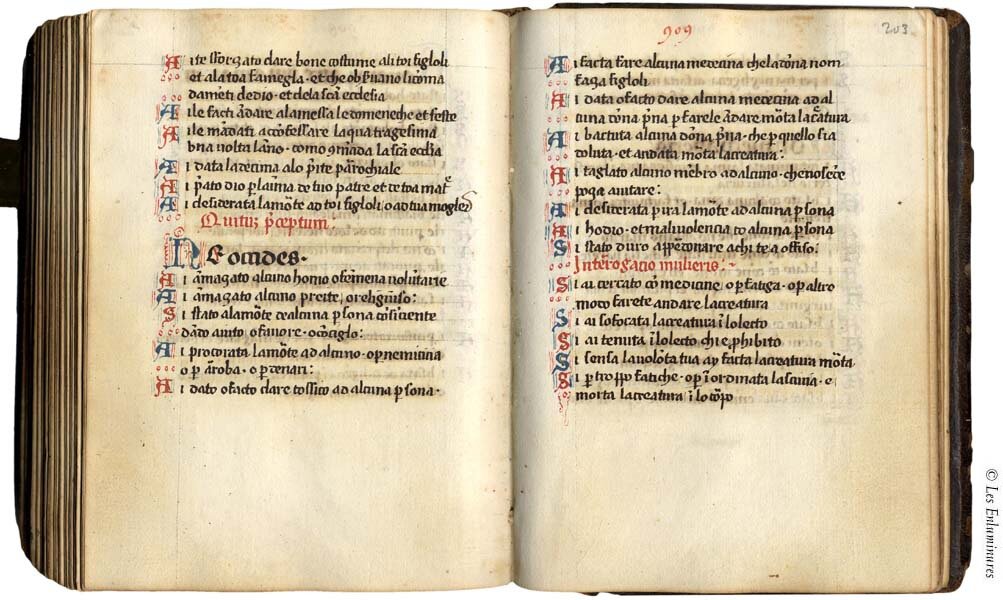 Ai te sforzato dare bone costume ali toi figloli
et a la toa famegla · et che obs̃uano li coma
damẽti de dio · et de la scã ecclesia
Ai le facti ãdare a la messa le domeneche et feste
Ai le mãdati a confessare la quatragesima
una uolta lãno · como cõmãda la scã ecc̃ia
Ai data la decima a lo p̃ite parochiale
Ai p̃ato dio p laĩma de tuo patre et de toa mat̃
Ai desiderata la mõte ad toi figloli / o ad tua mogle
Quītuz p̃ceptum ·
Ne occides ·
Ai ãmazato alcuno homo o femena uolũtarie
Ai ãmazato alcuno preite, o religiuso:
Si stato a la mõte de alcuna p sona consciente
dãto aiuto, o fauore · o cõsiglo:
Ai procorata la mõte ad alcuno · o p nemicitia
o p ãroba · o p denari:
Ai dato o facto dare tossico ad alcuna p sona ·
909
203
Ai facta fare alcuna medecina che la dõna nom
faza figloli
Ai data o facto dare alcuna medecina ad al
cuna dõna p̃na p farele ãdare mõta la c̃atura
Ai battuta alcuna dõna p̃na · che p quello sia
doluta · et andata mõta la creatura:
Ai taglato alcuno mẽbro ad alcuno · che no se ce
poza aiutare:
Ai desiderata p ira la mõte ad alcuna p sona
Ai hodio · et maliuolencia co alcuna p sona
Si stato duro a p̃donare a chi te a offiso:
Interrogacio mulieris:
Si ai cercato cõ medicine · o p fatiga · o p altro
modo farete andare la creatura
Si ai sofocata la creatura ĩ lo lecto
Si ai tenuta ĩ lo lecto chi e p̃hibito
Si sensa la uolõta tua ay facta la creatura mõta ·
Si p troppo fatiche · o p ĩordinata lasciuia · e
morta la creatura ĩ lo corpo
© Les Enluminures